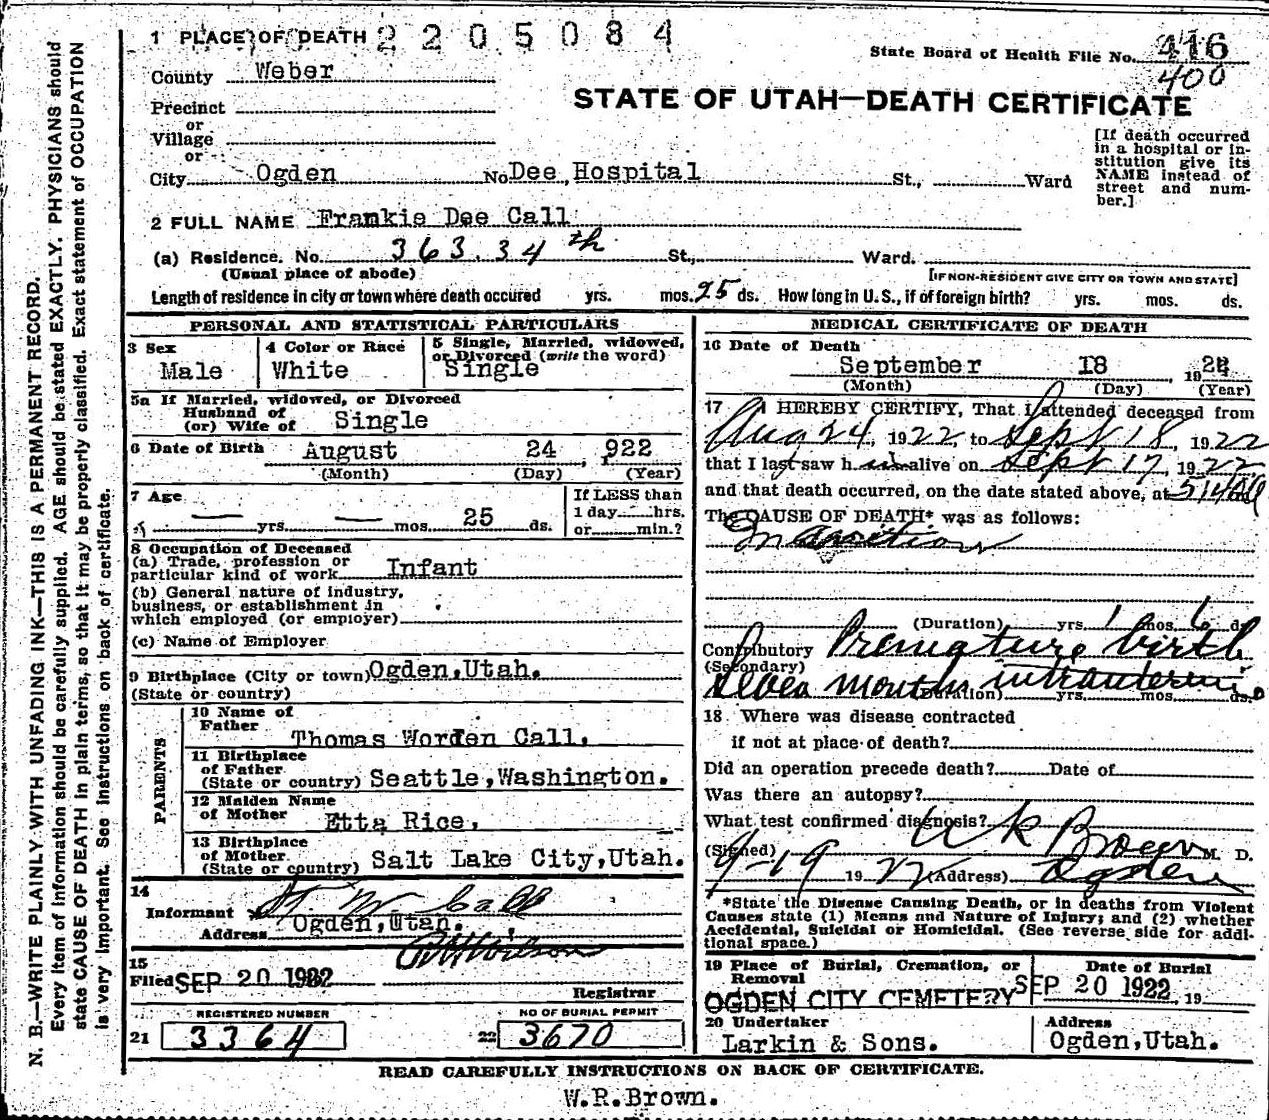 N. B.—WRITE PLAINLY, WITH UNFADING INK—THIS IS A PERMANENT RECORD.
Every item of information should be carefully supplied. AGE should be stated EXACTLY. PHYSICIANS should
state CAUSE OF DEATH in plain terms, so that it may be properly classified. Exact statement of OCCUPATION
is very important. See instructions on back of certificate.
1 PLACE OF DEATH 2205084
State Board of Health File No. 416
400
County Weber
STATE OF UTAH—DEATH CERTIFICATE
Precinct
or
Village
or
City Ogden No Dee Hospital St., Ward
[If death occurred
in a hospital or in-
stitution give its
NAME instead of
street and num-
ber.]
2 FULL NAME Frankie Dee Call
(a) Residence. No. 363. 34th St., Ward.
(Usual place of abode) [IF NON-RESIDENT GIVE CITY OR TOWN AND STATE]
Length of residence in city or town where death occured yrs. mos. 25 ds. How long in U. S., if of foreign birth? yrs. mos. ds.
PERSONAL AND STATISTICAL PARTICULARS
3 Sex
Male
4 Color or Race
White
5 Single, Married, widowed,
or Divorced (write the word)
Single
5a If Married, widowed, or Divorced
Husband of
(or) Wife of Single
6 Date of Birth August 24 , 1922
(Month) (Day) (Year)
7 Age
— yrs. — mos. 25 ds.
If LESS than
1 day hrs.
or min.?
8 Occupation of Deceased
(a) Trade, profession or
particular kind of work Infant
(b) General nature of industry,
business, or establishment in
which employed (or employer)
(c) Name of Employer
9 Birthplace (City or town) Ogden, Utah.
(State or country)
PARENTS
10 Name of
Father Thomas Worden Call,
11 Birthplace
of Father
(State or country) Seattle, Washington.
12 Maiden Name
of Mother Etta Rice,
13 Birthplace
of Mother
(State or country) Salt Lake City, Utah.
14
Informant T. W. Call
Address Ogden, Utah.
15
Filed SEP 20 1922
Registrar
REGISTERED NUMBER
21 3364
NO OF BURIAL PERMIT
22 3670
MEDICAL CERTIFICATE OF DEATH
16 Date of Death
September 18 , 1922
(Month) (Day) (Year)
17 I HEREBY CERTIFY, That I attended deceased from
Aug 24, 1922, to Sept 18, 1922
that I last saw h im alive on Sept 17, 1922,
and that death occurred, on the date stated above, at
The CAUSE OF DEATH* was as follows:
Inanition
(Duration) yrs. 1 mos. 6 ds.
Contributory Premature birth
(Secondary)
seven months intrauterine
(Duration) yrs. mos. ds.
18 Where was disease contracted
if not at place of death?
Did an operation precede death? Date of
Was there an autopsy?
What test confirmed diagnosis?
(Signed) W R Brown M. D.
9-19 1922 (Address) Ogden
*State the Disease Causing Death, or in deaths from Violent
Causes state (1) Means and Nature of Injury; and (2) whether
Accidental, Suicidal or Homicidal. (See reverse side for addi-
tional space.)
19 Place of Burial, Cremation, or
Removal
OGDEN CITY CEMETERY
Date of Burial
SEP 20 1922, 19
20 Undertaker
Larkin & Sons.
Address
Ogden, Utah.
READ CAREFULLY INSTRUCTIONS ON BACK OF CERTIFICATE.
W.R.Brown.